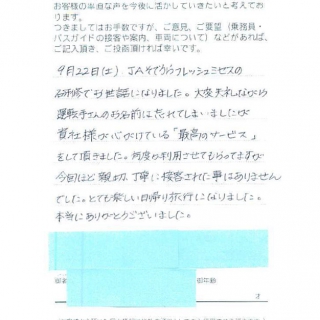 お客様の率直な声を今後に活かしていきたいと考えて
おります。
つきましてはお手数ですが、ご意見、ご要望(乗務員・
バスガイドの接客や案内、車両について)などがあれば、
ご記入頂き、ご投函頂ければ幸いです。
9月22日(土) JAそでうらフレッシュミセスの
研修でお世話になりました。大変失礼ながら
運転手さんのお名前は忘れてしまいましたが
貴社様が心がけている「最高のサービス」
をして頂きました。何度か利用させてもらってますが
今回ほど親切、丁寧に接客された事はありません
でした。とても楽しい日帰り旅行になりました。
本当にありがとうございました。